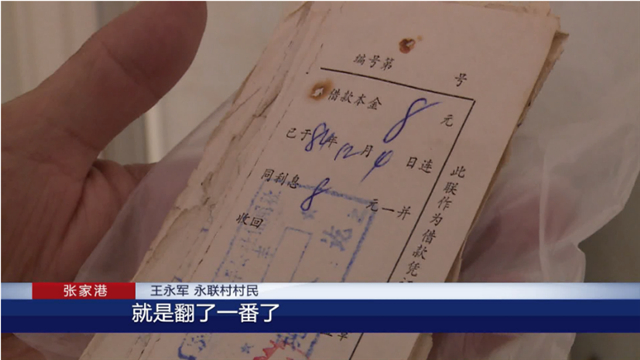 编号第 号
借款本金 8 元
已于84年12月4日连
同利息 8 元一并
收回
此联作为借款凭
张家港 王永军 永联村村民
就是翻了一番了